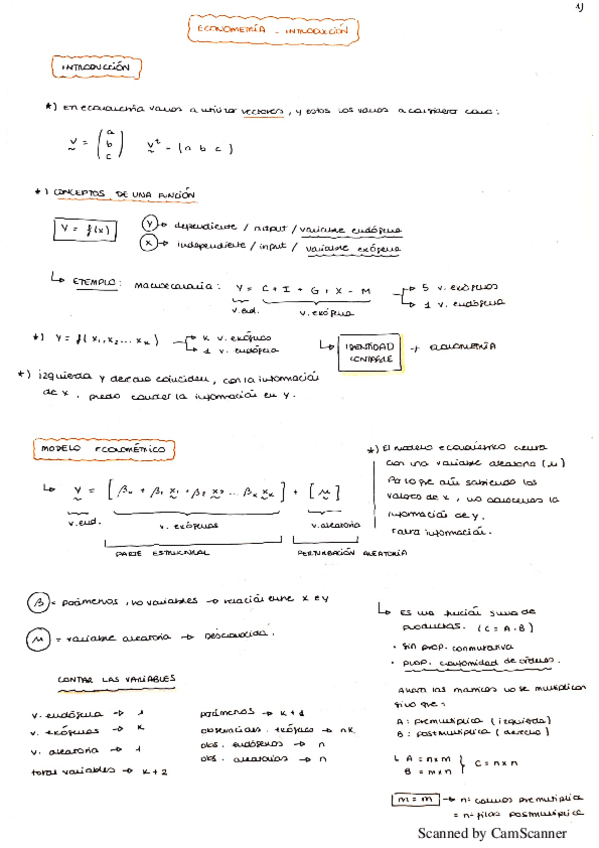 1)
ECONOMETRÍA - INTRODUCCIÓN
INTRODUCCIÓN
*) En econometría vamos a utilizar vectores, y estos los vamos a considerar como:
v = (a b c) vᵗ - (a b c)
*) CONCEPTOS DE UNA FUNCIÓN
Y = f(x)
Y → dependiente / output / variable endógena
X → independiente / input / variable exógena
↳ EJEMPLO: macroeconomía: Y = C + I + G + X - M
→ 5 v. exógenas
→ 1 v. endógena
v. end. v. exógena
*) Y = f(x₁, x₂ ... xₖ)
→ K v. exógenas
→ 1 v. endógena
↳ IDENTIDAD CONTABLE ≠ ECONOMETRÍA
*) izquierda y derecha coinciden, con la información
de x, puedo conocer la información en y.
MODELO ECONOMÉTRICO
↳ Y = [β₀ + β₁ x₁ + β₂ x₂ ... βₖ xₖ] + [μ]
v. end. v. exógenas v. aleatoria
PARTE ESTRUCTURAL PERTURBACIÓN ALEATORIA
*) El modelo econométrico cuenta
con una variable aleatoria (μ)
Por lo que aún sabiendo los
valores de x, no conocemos la
información de y.
Falta información.
β = parámetros, no variables → relación entre x e y
μ = variable aleatoria → Desconocida.
CONTAR LAS VARIABLES
v. endógena → 1
v. exógenas → K
v. aleatoria → 1
total variables → K + 2
parámetros → K + 1
observaciones. exógenas → nK
obs. endógenas → n
obs. aleatorias → n
↳ Es una función suma de
productos. (C = A · B)
· Sin prop. conmutativa
· prop. conformidad de órdenes.
las matrices no se multiplican
sino que:
A: premultiplica (izquierda)
B: postmultiplica (derecha)
↳ A = n x m
B = m x n
} C = n x n
m = m → nº columnas premultiplica
= nº filas postmultiplica
Scanned by CamScanner